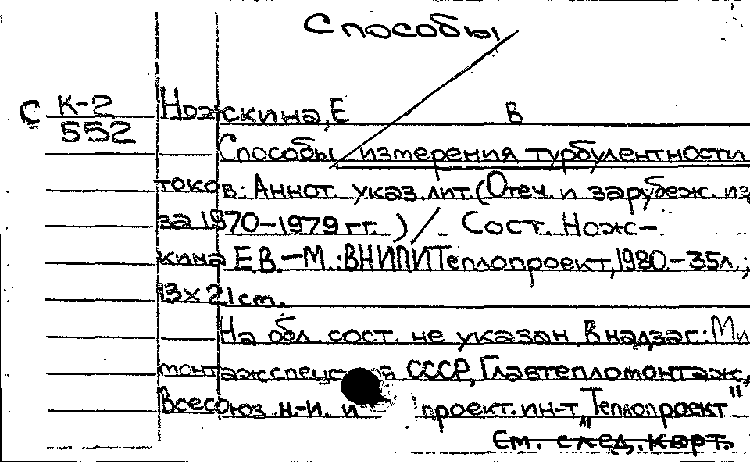 Способы
С К-2
552
Ножкина, Е В
Способы измерения турбулентности
токов: Аннот. указ. лит. (Отеч. и зарубеж. из
за 1970-1979 гг. ) / Сост. Нож-
кина Е В -М.: ВНИПИТеплопроект, 1980.-35л.;
13х21 cm.
На обл. сост. не указан. В надзаг: Ми
монтажспецст я СССР, Главтепломонтаж,
Всесоюз. н.-и. и проект. ин-т "Теплопроект"
См. след. карт.